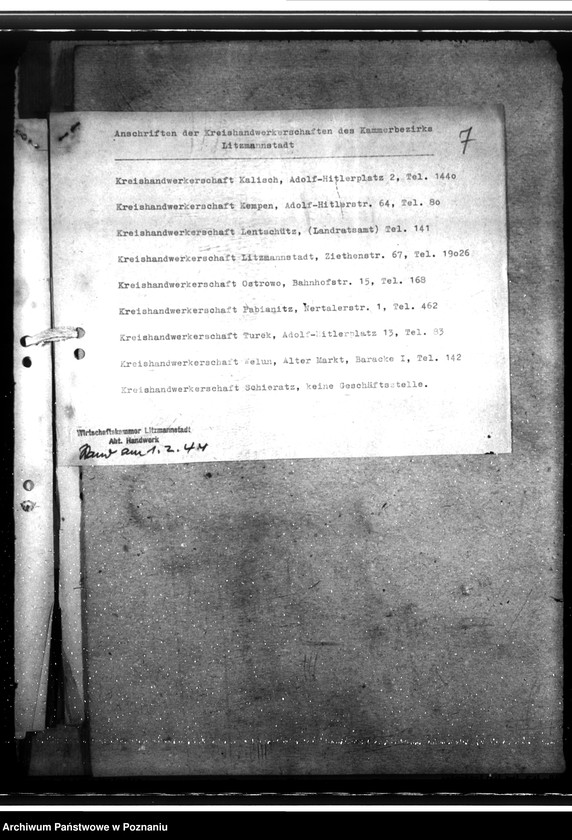 7
Anschriften der Kreishandwerkerschaften des Kammerbezirks
Litzmannstadt
Kreishandwerkerschaft Kalisch, Adolf-Hitlerplatz 2, Tel. 144o
Kreishandwerkerschaft Kempen, Adolf-Hitlerstr. 64, Tel. 8o
Kreishandwerkerschaft Lentschütz, (Landratsamt) Tel. 141
Kreishandwerkerschaft Litzmannstadt, Ziethenstr. 67, Tel. 19o26
Kreishandwerkerschaft Ostrowo, Bahnhofstr. 15, Tel. 168
Kreishandwerkerschaft Pabianitz, Nertalerstr. 1, Tel. 462
Kreishandwerkerschaft Turek, Adolf-Hitlerplatz 13, Tel. 83
Kreishandwerkerschaft Welun, Alter Markt, Baracke I, Tel. 142
Kreishandwerkerschaft Schieratz, keine Geschäftsstelle.
Wirtschaftskammer Litzmannstadt
Abt. Handwerk
Stand am 1.2.44
Archiwum Państwowe w Poznaniu